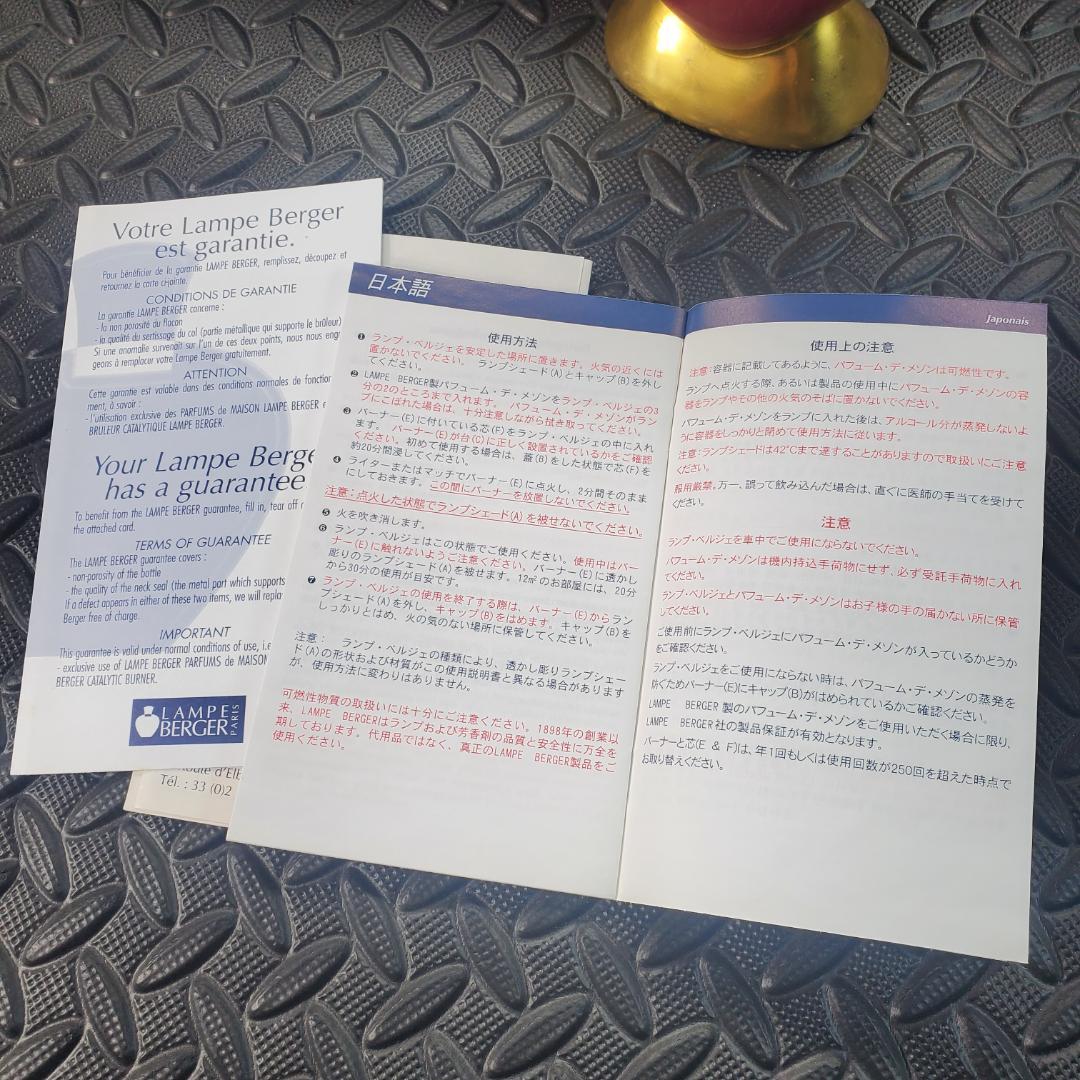 Votre Lampe Berger
est garantie.
Pour bénéficier de la garantie LAMPE BERGER, remplissez, découpez et
retournez la carte ci-jointe.
CONDITIONS DE GARANTIE
La garantie LAMPE BERGER concerne :
- la non porosité du flacon
- la qualité du sertissage du col (partie métallique qui supporte le brûleur)
Si une anomalie survenait sur l'un de ces deux points, nous nous eng
geons à remplacer votre Lampe Berger gratuitement.
ATTENTION
Cette garantie est valable dans des conditions normales de fonction
ment, à savoir :
- l'utilisation exclusive des PARFUMS de MAISON LAMPE BERGER e
BRULEUR CATALYTIQUE LAMPE BERGER.
Your Lampe Berge
has a guarantee
To benefit from the LAMPE BERGER guarantee, fill in, tear off
the attached card.
TERMS OF GUARANTEE
The LAMPE BERGER guarantee covers :
- non-porosity of the bottle
- the quality of the neck seal (the metal part which supports
If a defect appears in either of these two items, we will repla
Berger free of charge.
IMPORTANT
This guarantee is valid under normal conditions of use, i.e
- exclusive use of LAMPE BERGER PARFUMS de MAISON
BERGER CATALYTIC BURNER.
LAMPE
BERGER
PARIS
Tél. : 33 (0)2
日本語
使用方法
❶ ランプ・ベルジェを安定した場所に置きます。火気の近くには
置かないでください。 ランプシェード(A)とキャップ(B)を外し
てください。
❷ LAMPE BERGER製パフューム・デ・メゾンをランプ・ベルジェの3
分の2のところまで入れます。 パフューム・デ・メゾンがラン
プにこぼれた場合は、十分注意しながら拭き取ってください。
❸ バーナー(E)に付いている芯(F)をランプ・ベルジェの中に入れ
ます。 バーナー(E)が台(C)に正しく設置されているかをご確認
ください。初めて使用する場合は、蓋(B)をした状態で芯(F)を
約20分間浸してください。
❹ ライターまたはマッチでバーナー(E)に点火し、2分間そのまま
にしておきます。この間にバーナーを放置しないでください。
注意：点火した状態でランプシェード(A)を被せないでください。
❺ 火を吹き消します。
❻ ランプ・ベルジェはこの状態でご使用ください。使用中はバー
ナー(E)に触れないようご注意ください。バーナー(E)に透かし
彫りのランプシェード(A)を被せます。12㎡のお部屋には、20分
から30分の使用が目安です。
❼ ランプ・ベルジェの使用を終了する際は、バーナー(E)からラン
プシェード(A)を外し、キャップ(B)をはめます。キャップ(B)を
しっかりとはめ、火の気のない場所に保管してください。
注意： ランプ・ベルジェの種類により、透かし彫りランプシェー
ド(A)の形状および材質がこの使用説明書と異なる場合があります
が、使用方法に変わりはありません。
可燃性物質の取扱いには十分にご注意ください。1898年の創業以
来、LAMPE BERGERはランプおよび芳香剤の品質と安全性に万全を
期しております。代用品ではなく、真正のLAMPE BERGER製品をご
使用ください。
Japonais
使用上の注意
注意：容器に記載してあるように、パフューム・デ・メゾンは可燃性です。
ランプへ点火する際、あるいは製品の使用中にパフューム・デ・メゾンの容
器をランプやその他の火気のそばに置かないでください。
パフューム・デ・メゾンをランプに入れた後は、アルコール分が蒸発しないよ
うに容器をしっかりと閉めて使用方法に従います。
注意：ランプシェードは42℃まで達することがありますので取扱いにご注意
ください。
服用厳禁。万一、誤って飲み込んだ場合は、直ぐに医師の手当てを受けて
ください。
注意
ランプ・ベルジェを車中でご使用にならないでください。
パフューム・デ・メゾンは機内持込手荷物にせず、必ず受託手荷物に入れ
てください。
ランプ・ベルジェとパフューム・デ・メゾンはお子様の手の届かない所に保管
してください。
ご使用前にランプ・ベルジェにパフューム・デ・メゾンが入っているかどうか
をご確認ください。
ランプ・ベルジェをご使用にならない時は、パフューム・デ・メゾンの蒸発を
防ぐためバーナー(E)にキャップ(B)がはめられているかご確認ください。
LAMPE BERGER 製のパフューム・デ・メゾンをご使用いただく場合に限り、
LAMPE BERGER社の製品保証が有効となります。
バーナーと芯(E & F)は、年1回もしくは使用回数が250回を超えた時点で
お取り替えください。